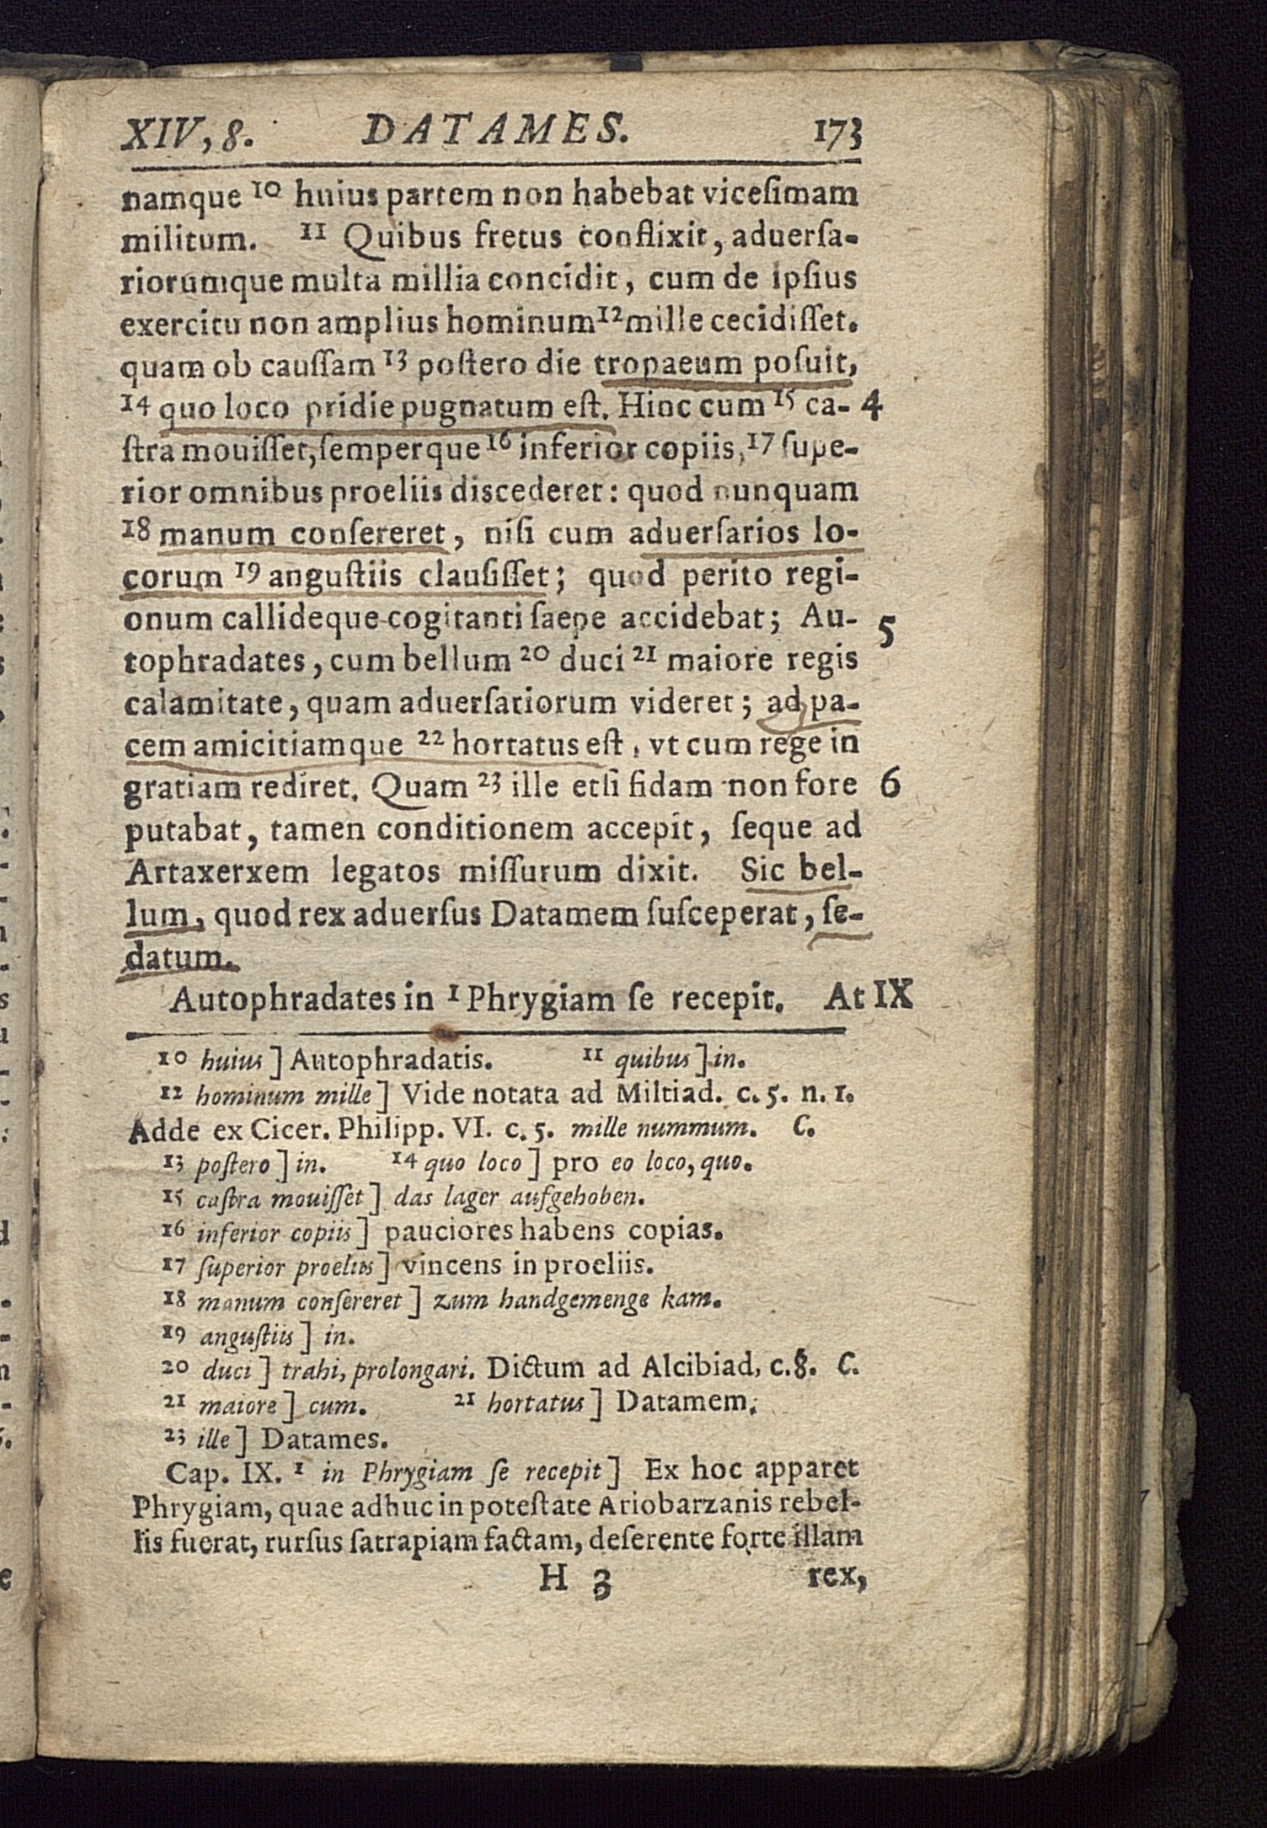 XIV, 8. DATAMES. 173
namque 10 huius partem non habebat viceſimam
militum. 11 Quibus fretus conflixit, aduerſa-
riorumque multa millia concidit, cum de ipſius
exercitu non amplius hominum 12 mille cecidiſſet.
quam ob cauſſam 13 poſtero die tropaeum poſuit,
14 quo loco pridie pugnatum eſt. Hinc cum 15 ca- 4
ſtra mouiſſet, ſemperque 16 inferior copiis, 17 ſupe-
rior omnibus proeliis diſcederet: quod nunquam
18 manum conſereret, niſi cum aduerſarios lo-
corum 19 anguſtiis clauſiſſet; quod perito regi-
onum callideque cogitanti ſaepe accidebat; Au- 5
tophradates, cum bellum 20 duci 21 maiore regis
calamitate, quam aduerſariorum videret; ad pa-
cem amicitiamque 22 hortatus eſt, vt cum rege in
gratiam rediret. Quam 23 ille etſi fidam non fore 6
putabat, tamen conditionem accepit, ſeque ad
Artaxerxem legatos miſſurum dixit. Sic bel-
lum, quod rex aduerſus Datamem ſuſceperat, ſe-
datum.
Autophradates in 1 Phrygiam ſe recepit. At IX
10 huius] Autophradatis. 11 quibus] in.
12 hominum mille] Vide notata ad Miltiad. c. 5. n. 1.
Adde ex Cicer. Philipp. VI. c. 5. mille nummum. C.
13 poſtero] in. 14 quo loco] pro eo loco, quo.
15 caſtra mouiſſet] das lager aufgehoben.
16 inferior copiis] pauciores habens copias.
17 ſuperior proeliis] vincens in proeliis.
18 manum conſereret] zum handgemenge kam.
19 anguſtiis] in.
20 duci] trahi, prolongari. Dictum ad Alcibiad, c. 8. C.
21 maiore] cum. 21 hortatus] Datamem.
23 ille] Datames.
Cap. IX. 1 in Phrygiam ſe recepit] Ex hoc apparet
Phrygiam, quae adhuc in poteſtate Ariobarzanis rebel-
lis fuerat, rurſus ſatrapiam factam, deferente forte illam
H 3 rex,